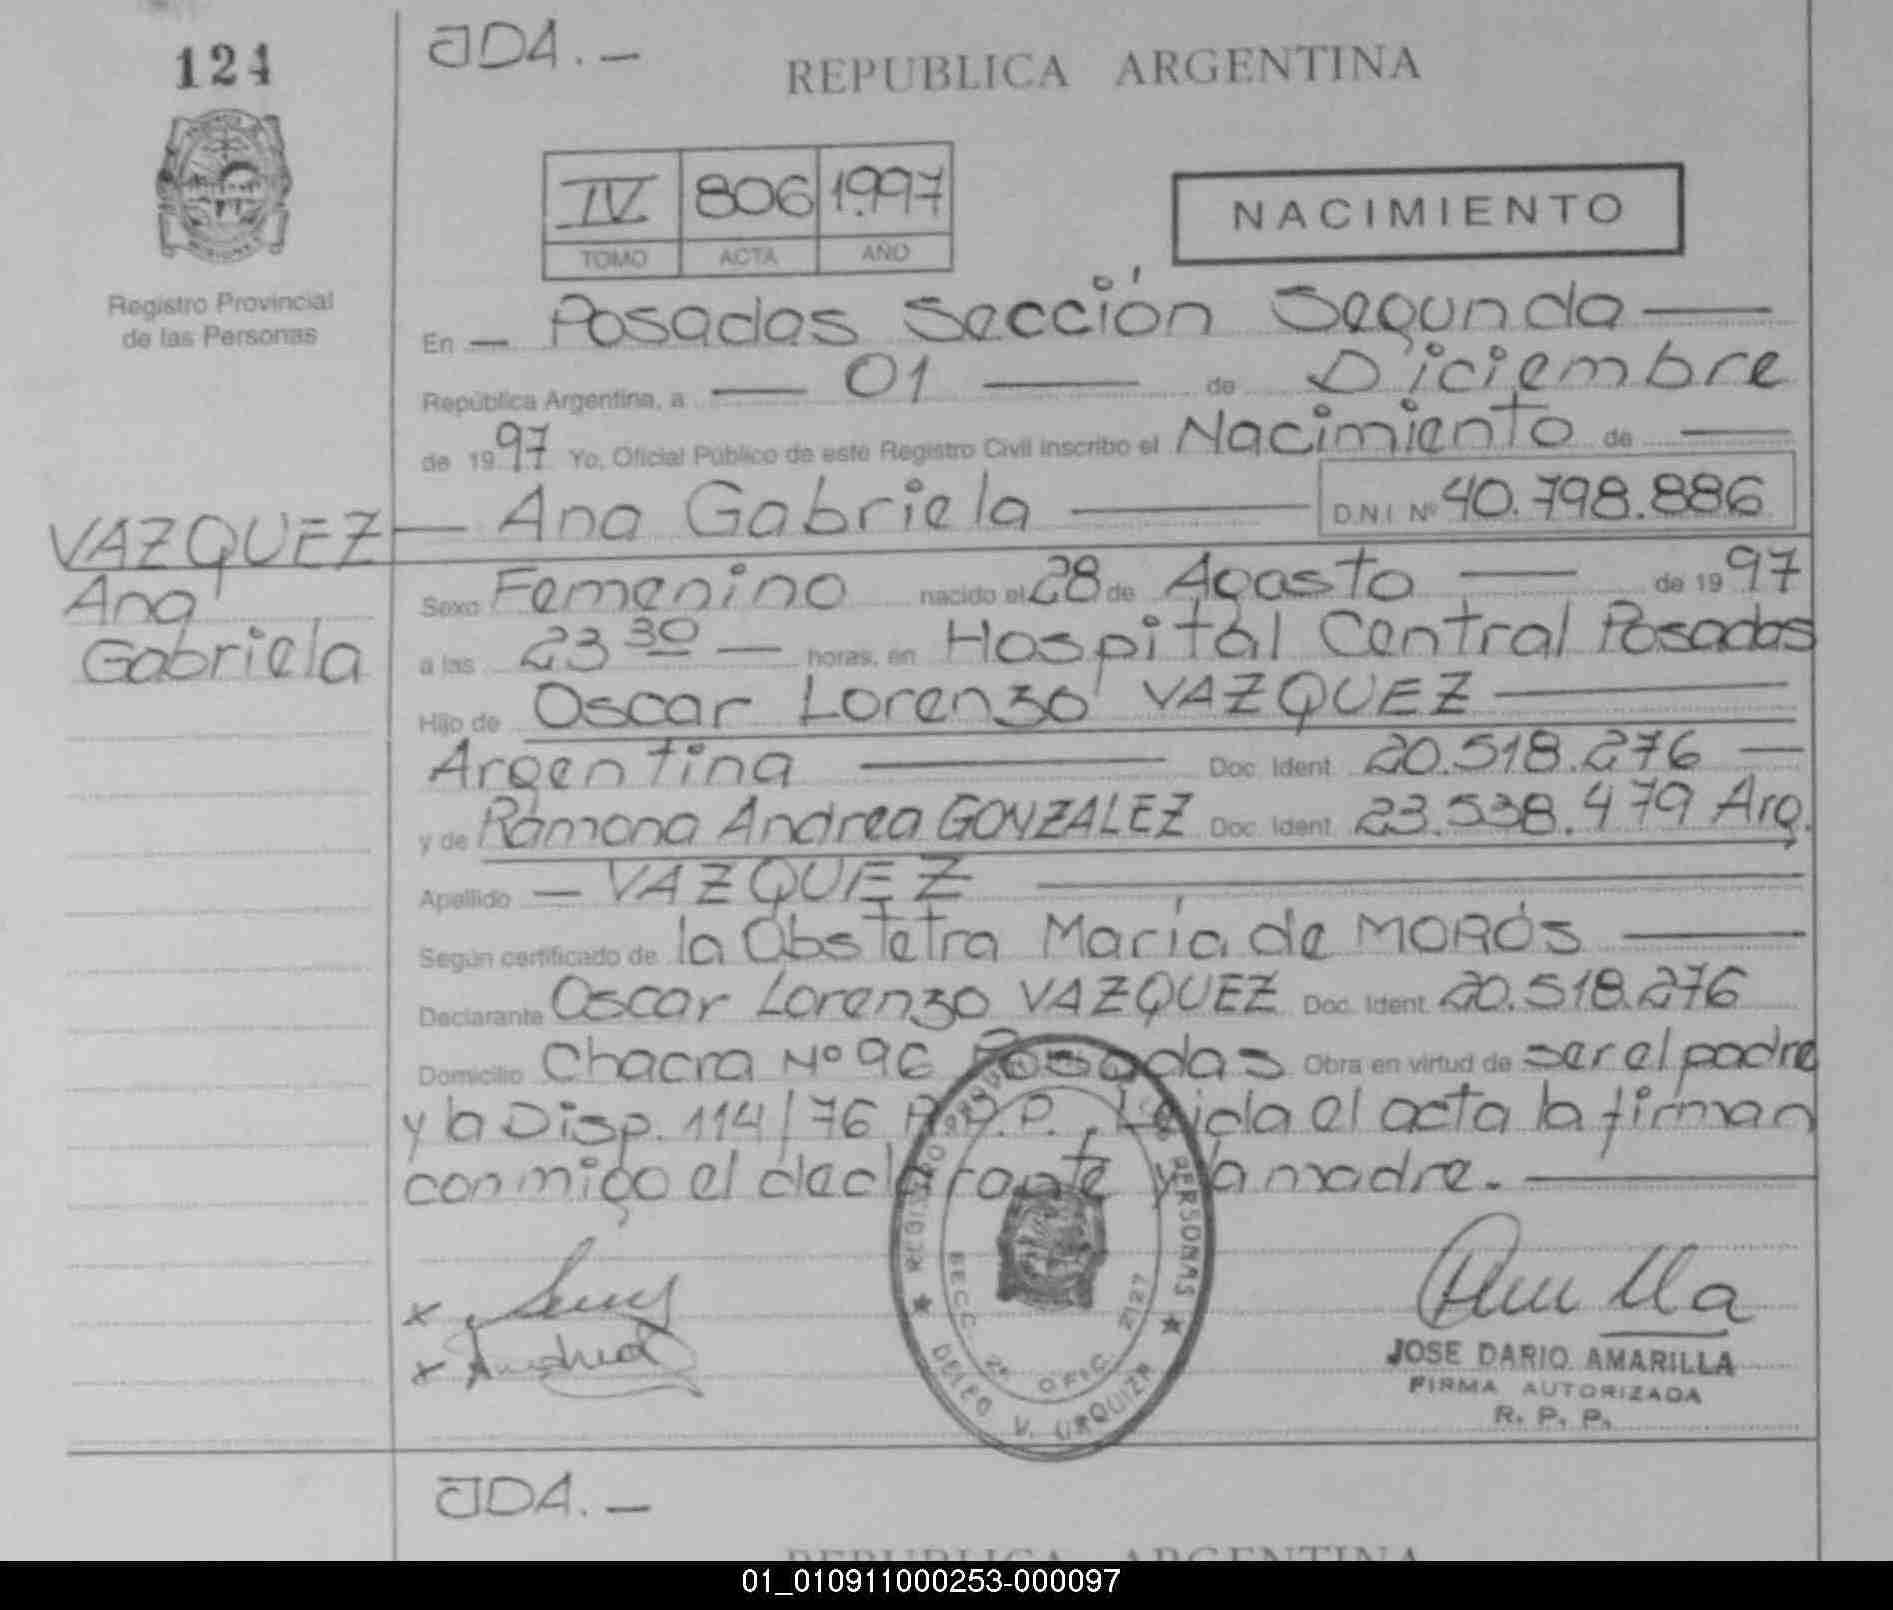 124
JDA.-
REPUBLICA ARGENTINA
IV 806 1997
TOMO ACTA AÑO
NACIMIENTO
Registro Provincial
de las Personas
En - Posadas Sección Segunda
República Argentina, a 01 de Diciembre
de 1997 Yo, Oficial Público de este Registro Civil inscribo el Nacimiento de
Ana Gabriela D.N.I. Nº 40.798.886
VAZQUEZ
Ana
Gabriela
Sexo Femenino nacido el 28 de Agosto de 1997
a las 23 30 horas, en Hospital Central Posadas
Hijo de Oscar Lorenzo VAZQUEZ
Argentina Doc. Ident. 20.518.276
y de Ramona Andrea GONZALEZ Doc. Ident. 23.538.479 Arg.
Apellido - VAZQUEZ
Según certificado de la Obstetra María de MORÓS
Declarante Oscar Lorenzo VAZQUEZ Doc. Ident. 20.518.276
Domicilio Chacra Nº 96 Posadas Obra en virtud de ser el padre
y la Disp. 114/76 R.P.P. Leida el acta la firman
conmigo el declarante y la madre.
REGISTRO PERSONAS
SECC. 2ª OFIC. 2127
DELEG V. URQUIZA
JOSE DARIO AMARILLA
FIRMA AUTORIZADA
R. P. P.
JDA.-
REPUBLICA ARGENTINA
01_010911000253-000097